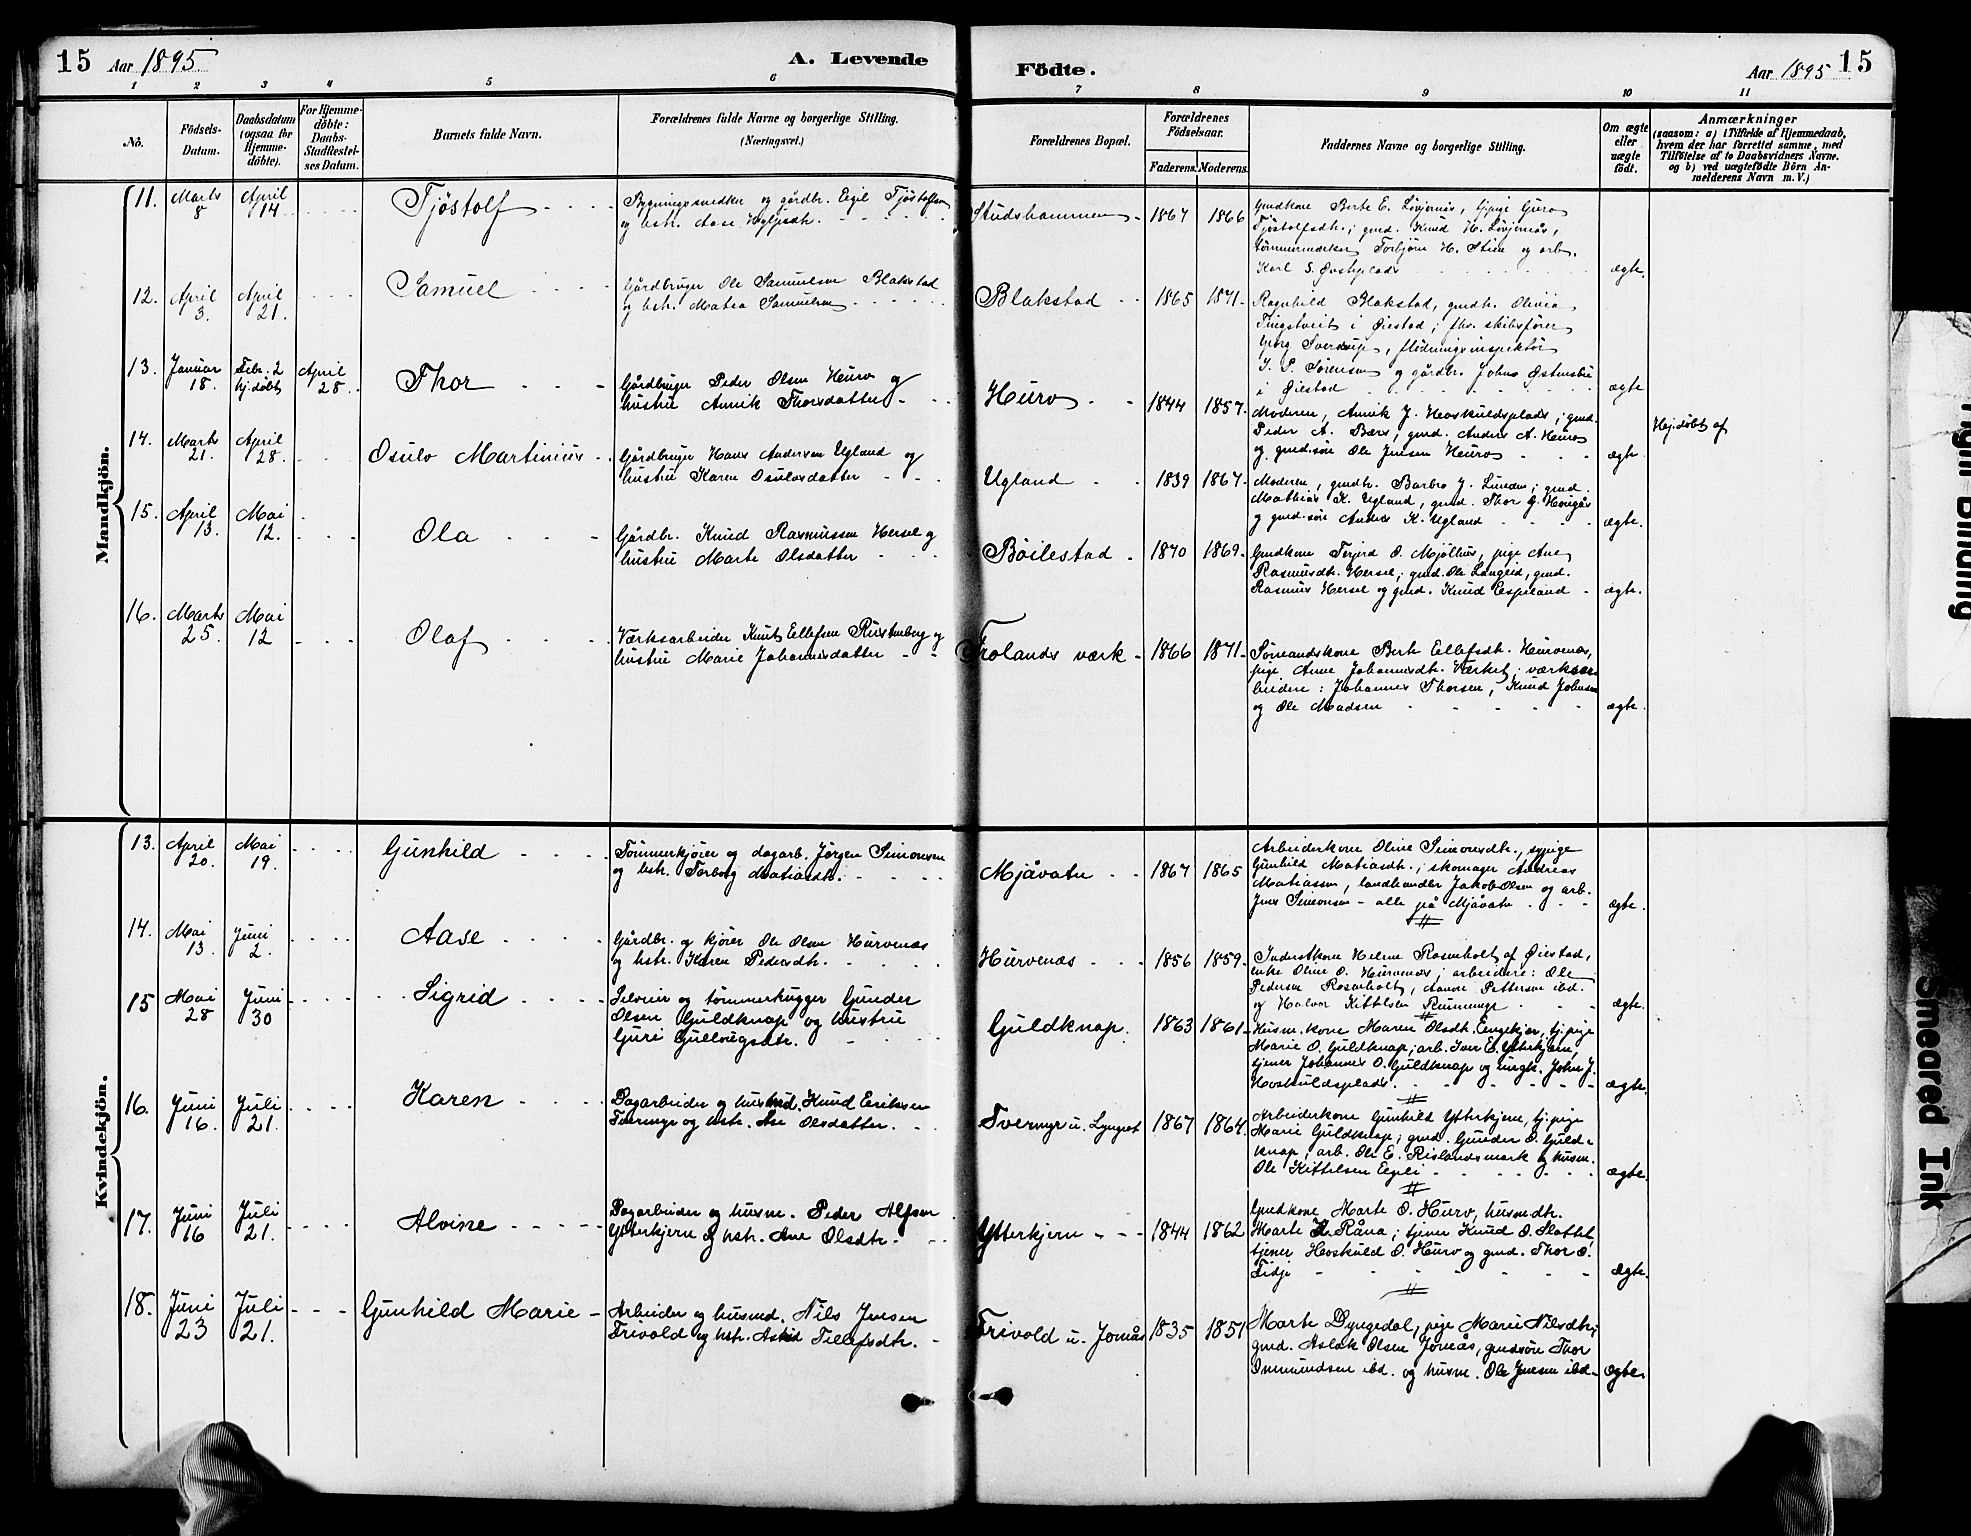 15 Aar 1895. A. Levende
Födte. Aar 1895 15
1 2 3 4 5 6
7 8 9 10 11
No.
Födsels-Datum.
Daabsdatum (ogsaa for Hjemmedöbte).
For Hjemmedöbte: Daabs-Stadfæstelses Datum.
Barnets fulde Navn.
Forældrenes fulde Navne og borgerlige Stilling. (Næringsvei.)
Forældrenes Bopæl.
Forældrenes Födselsaar.
Faderens. Moderens.
Faddernes Navne og borgerlige Stilling.
Om ægte eller uægte födt.
Anmærkninger
(saasom: a) i Tilfælde af Hjemmedaab, hvem der har forrettet samme, med Tilföielse af to Daabsvidners Navne, og b) ved uægtefödte Börn Anmelderens Navn m. V.)
Mandkjön.
11. Marts 8 April 14 Tjöstolf
og hstr. Aase
1867 1866
Karl S.
ægte.
12. April 3. April 21. Samuel
Gårdbruger Ole Samuelsen Blakstad
og hstr. Matea Samuelsen
Blakstad 1865 1871.
Ragnhild Blakstad, gmdk. Olivia
Tingstveit i Øiestad; fhv. skibsfører
Georg Sverdrup, flødningsinspektør
I. P. Sørensen og gårdbr. Johns
i Øiestad
ægte
13. Januar 18. Febr. 2 hj.döbt April 28 Thor
Gårdbruger Peder Olsen Heurv og
hustru Annik Thorsdatter
Heurv 1844 1857.
Moderen, Annik J. Hoskuldsplads; gmd.
Peder A. gmd. Anders A. Heurv
og gmd.søn Ole Jensen Heurv
ægte
Hj.döbt af
14. Marts 21. April 28. Osulv Martinius
Gårdbruger Hans Andersen Ugland og
hustru Karen Osulvsdatter
Ugland 1839 1867.
Moderen, gmdk. Barbro J. gmd.
Mathias K. Ugland, gmd. Thor
og gmd.søn Anders K. Ugland
ægte.
15. April 13. Mai 12. Ola
Gårdbr. Knud Rasmussen Hersel og
hustru Marte Olsdatter
Böilestad 1870 1869.
Gmdkone Terjerd O. Mjølhus, pige Ane
Rasmusdtr. Hersel; gmd. Ole Langeid, gmd.
Rasmus Hersel og gmd. Knud Espeland
ægte.
16. Marts 25. Mai 12 Olaf
Værksarbeider Knut Ellefsen Rustenberg og
hustru Marie Johannesdatter
Frolands værk 1866 1871.
Sømandskone Berte Ellefsdtr. Heurvenes,
pige Anne Johannesdtr. Værket; værksar-
beidere: Johannes Thorsen, Knud Johnsen
og Ole Madsen
ægte.
Kvindekjön.
13. April 20. Mai 19. Gunhild
Tømmerkjører og dagarb. Jørgen Simonsen
og hstr. Torborg Matiasdtr.
Mjåvatn 1867 1865
Arbeiderkone Oline Simonsdtr., sypige
Gunhild Matiasdtr.; skomager Andreas
Matiassen, landhandler Jakob Olsen og arb.
Jens Simonsen - alle på Mjåvatn
ægte.
14. Mai 13. Juni 2. Aase
Gårdbr. og kjører Ole Olsen Hurvenæs
og hstr. Karen Pedersdtr.
Hurvenæs 1856 1859.
Inderstkone Helene Rosenholt af Øiestad,
enke Oline O. Hurvenæs; arbeidere: Ole
Pedersen Rosenholt, Aanon Pettersen ibd.
og Halvor Kittelsen
ægte.
15 Mai 28 Juni 30 Sigrid
Selveier og tømmerhugger Gunder
Olsen Guldknap og hustru
Guri
Guldknap. 1863 1861.
Husm.kone Maren Olsdtr. Engekjær, tj.pige
Marie O. Guldknap; arb. Iver E. Ytterkjern,
tjener Johannes O. Guldknap og ungk. John J.
Hoskuldsplads.
ægte.
16. Juni 16. Juli 21. Karen
Dagarbeider og husmd. Knud Eriksen
Tvermyr og hstr. Ane Olsdatter.
Tvermyr u. Lyngrot 1867 1864.
Arbeiderkone Gunhild Ytterkjern, tj.pige
Marie Guldknap; gmd. Gunder O. Guld-
knap, arb. Ole E. Rislandsmark og husm.
Ole Kittelsen Egeli
ægte.
17. Juni 16 Juli 21. Alvine
Dagarbeider og husm. Peder Alfsen
Ytterkjern og hstr. Ane Olsdtr.
Ytterkjern 1844 1862
Gmdkone Marte O. Hurv, husmdtr.
Marte K. Råna; tjener Knud O. Slottet,
tjener Hoskuld O. Hurv og gmd. Thor O.
Fidje
Ægte.
18. Juni 23 Juli 21. Gunhild Marie
Arbeider og husmd. Nils Jensen
Trivold og hstr. Astrid Tellefsdtr.
Trivold u. Jomås 1835 1851
Marte Dyngedal, pige Marie Nilsdtr;
gmd. Aslak Olsen Jomås, gmdsøn Thor
Ommundsen ibd. og husm. Ole Jensen ibd.
Ægte
Tight Binding
Smeared Ink